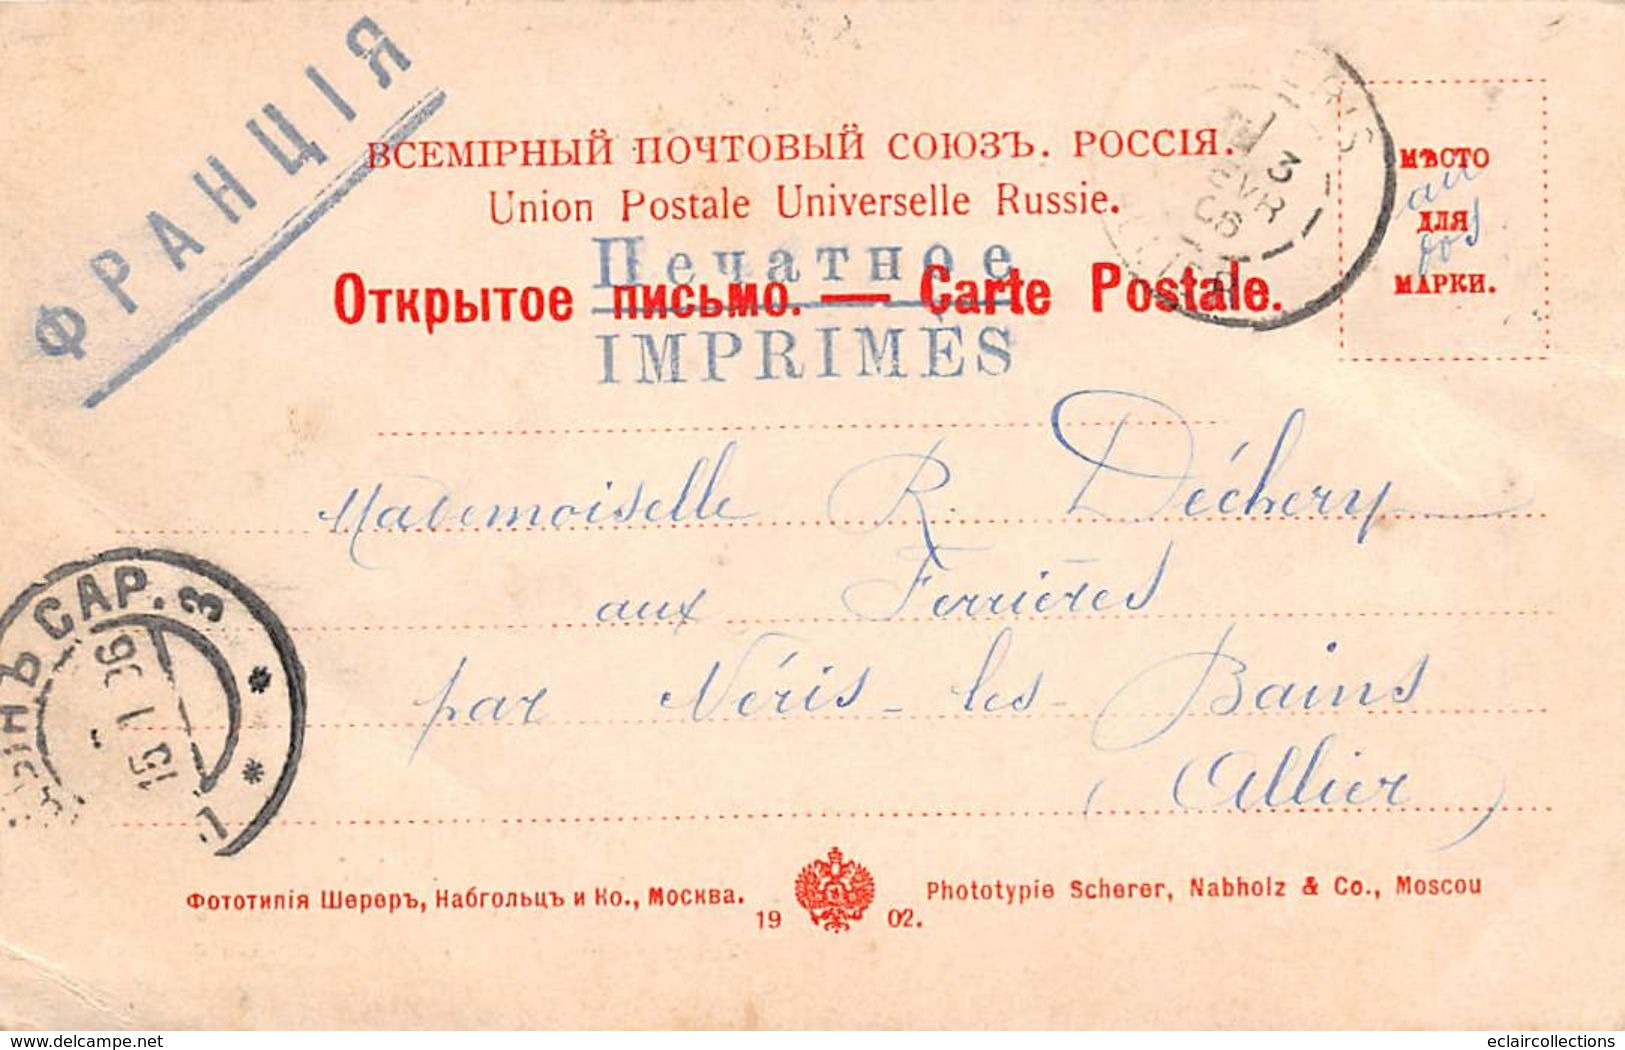 ФРАНЦІЯ
ВСЕМІРНЫЙ ПОЧТОВЫЙ СОЮЗЪ. РОССІЯ.
Union Postale Universelle Russie.
Печатное
Открытое письмо. — Carte Postale.
IMPRIMÉS
МѢСТО
au
ДЛЯ
dos
МАРКИ.
3
Mademoiselle R. Déchery
aux Ferrières
par Néris-les-Bains
(Allier)
САР. 3
15 1 06
Фототипія Шереръ, Набгольцъ и Ко., Москва.
1902.
Phototypie Scherer, Nabholz & Co., Moscou
delcampe.net
eclaircollections